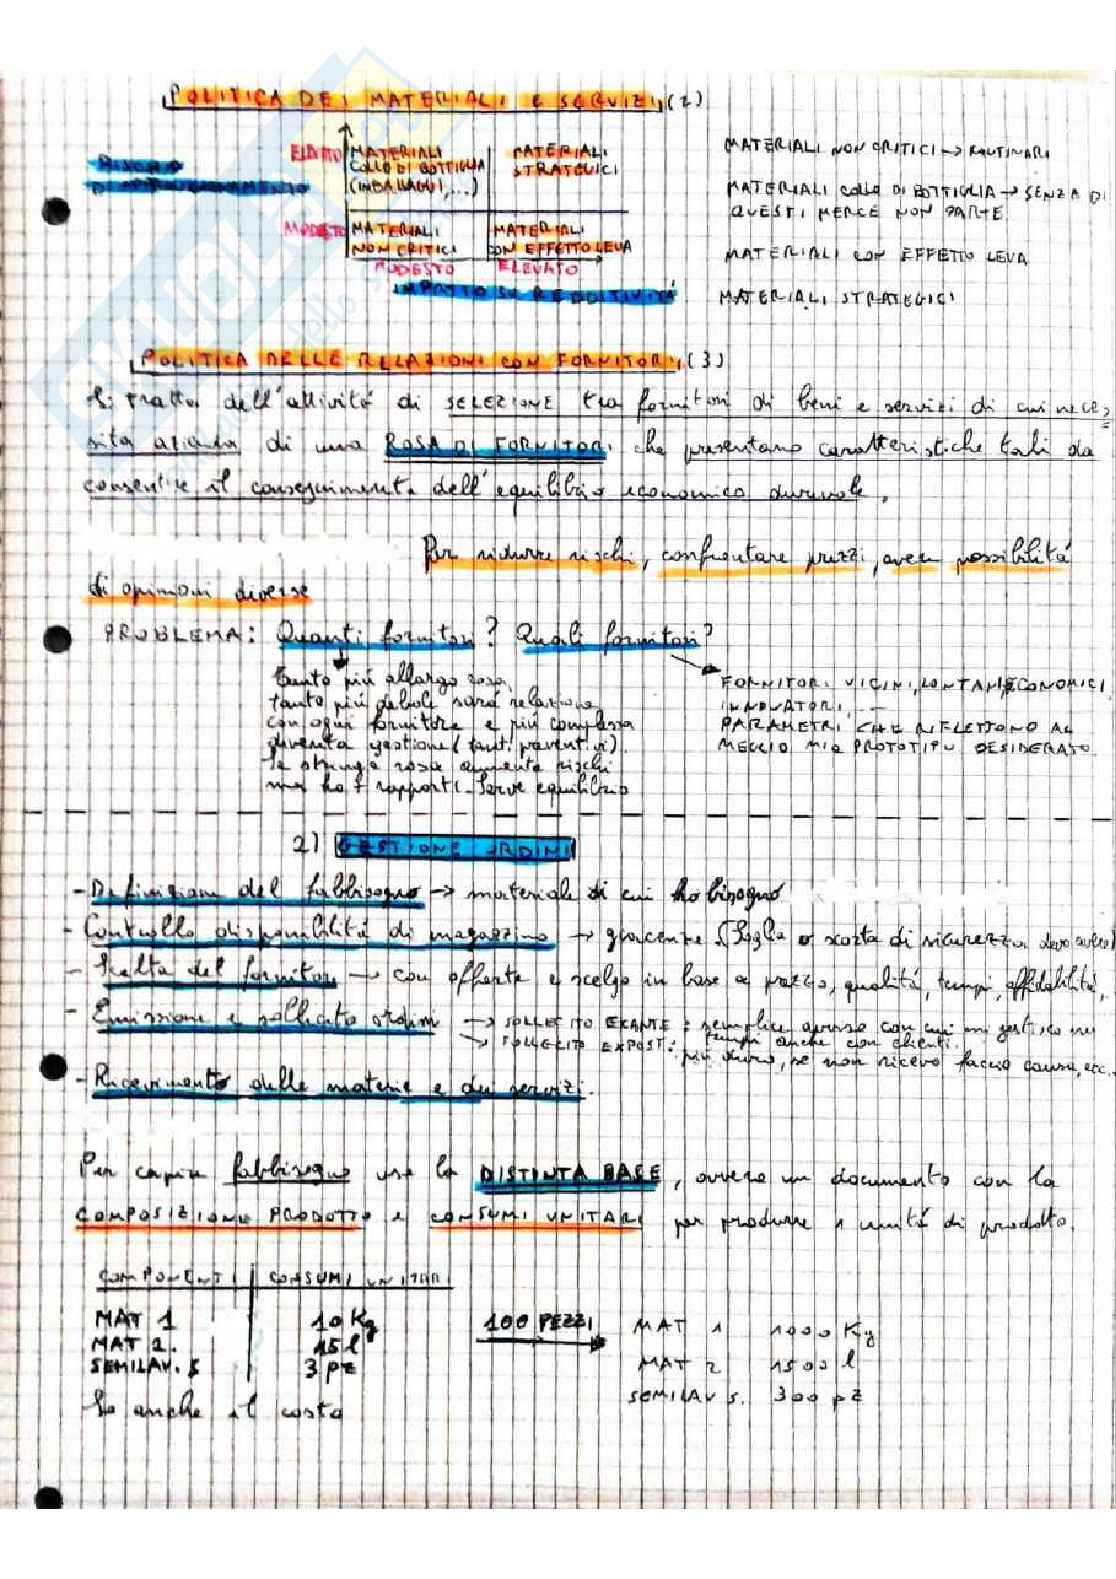 POLITICA DEI MATERIALI E SERVIZI (2)
RISCHIO
DI APPROVVIGIONAMENTO
ELEVATO
MATERIALI
COLLO DI BOTTIGLIA
(IMBALLAGGI,...)
MATERIALI
STRATEGICI
MODESTO
MATERIALI
NON CRITICI
MATERIALI
CON EFFETTO LEVA
MODESTO ELEVATO
IMPATTO SU REDDITIVITÀ
MATERIALI NON CRITICI → ROUTINARI
MATERIALI COLLO DI BOTTIGLIA → SENZA DI
QUESTI MERCE NON PARTE
MATERIALI CON EFFETTO LEVA
MATERIALI STRATEGICI
POLITICA DELLE RELAZIONI CON FORNITORI (3)
Si tratta dell'attività di SELEZIONE tra fornitori di beni e servizi di cui neces
sita azienda di una ROSA DI FORNITORI che presentano caratteristiche tali da
consentire il conseguimento dell'equilibrio economico durevole.
Per ridurre rischi, confrontare prezzi, avere possibilità
di opinioni diverse
PROBLEMA: Quanti fornitori? Quali fornitori?
tanto più allargo rosa,
tanto più debole sarà relazione
con ogni fornitore e più complessa
diventa gestione (tanti preventivi).
Se stringo rosa aumenta rischi
ma ho + rapporti. Serve equilibrio
FORNITORI VICINI, LONTANI, ECONOMICI,
INNOVATORI, —
PARAMETRI CHE RIFLETTONO AL
MEGLIO MIO PROTOTIPO DESIDERATO
2) GESTIONE ORDINI
- Definizione del fabbisogno → materiale di cui ho bisogno
- Controllo disponibilità di magazzino → giacenze (soglia o scorta di sicurezza devo avere)
- Scelta del fornitore → con offerte e scelgo in base a prezzo, qualità, tempi, affidabilità,
- Emissione e sollecito ordini → SOLLECITO EXANTE: semplice avviso con cui mi gestisco nei
tempi anche con clienti.
→ SOLLECITO EXPOST: più duro, se non ricevo faccio causa, ecc..
- Ricevimento delle materie e dei servizi.
Per capire fabbisogno uso la DISTINTA BASE, ovvero un documento con la
COMPOSIZIONE PRODOTTO e CONSUMI UNITARI per produrre 1 unità di prodotto.
COMPONENTI CONSUMI UNITARI
MAT 1 10 Kg
MAT 2. 15 l
SEMILAV. S 3 pz
100 PEZZI
MAT 1 1000 Kg
MAT 2 1500 l
SEMILAV S. 300 pz
So anche il costo